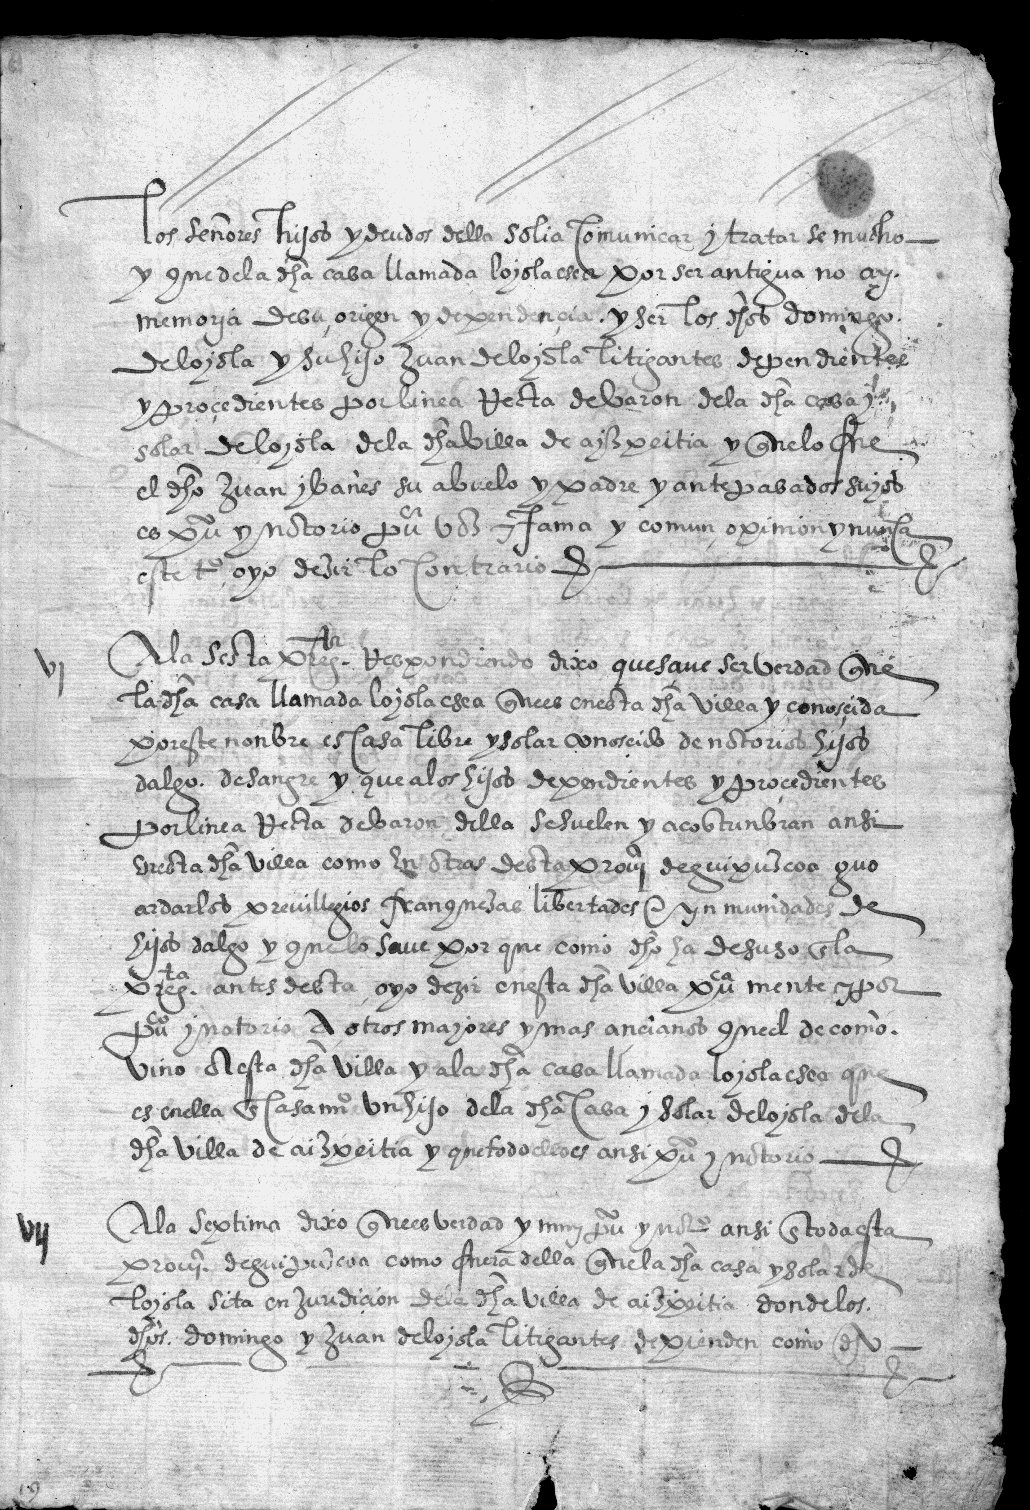 los señores hijos y deudos della solia comunicar y tratar se mucho
y que de la dha casa llamada loyola csea por ser antigua no ay
memoria de su origen y dependencia. y ser los dhos domingo.
de loyola y su hijo Juan de loyola litigantes dependientes
y proçedientes por linea Recta de baron de la dha casa y
solar de loyola de la dha villa de ayzpeitia y que lo fue
el dho Juan ybañes su abuelo y padre y antepasados suyos
es pu y notorio puca voz y fama y comun opinion y nunca
este to oyo dezir lo contrario
vj A la sesta pregta. Respondiendo dixo que save ser verdad que
la dha casa llamada loyola csea que es en esta dha villa y conosçida
por este nonbre es casa libre y solar conosçido de notorios hijos
dalgo. de sangre y que a los hijos dependientes y proçedientes
por linea Recta de baron della se suelen y acostunbran ansi
en esta dha villa como en otras desta proui de guipuzcoa guo
ardarlos previllegios franquezas libertades E yn munidades de
hijos dalgo y que lo save por que como dho ha de suso en la
pregta. antes desta oyo dezir en esta dha villa puca mente y por
puco y notorio A otros mayores y mas ancianos que el de como.
vino A esta dha villa y a la dha casa llamada loyola csea que
es en ella E casamo un hijo de la dha casa y solar de loyola de la
dha villa de aizpeitia y que todo ello es ansi pu y notorio
vij A la septima dixo que es verdad y muy pu y notoo ansi en toda esta
proui. de guipuzcoa como fuera della que la dha casa y solar de
loyola sita en Juridicion de la dha villa de aizpeitia donde los.
dhos. domingo y Juan de loyola litigantes depienden como dho